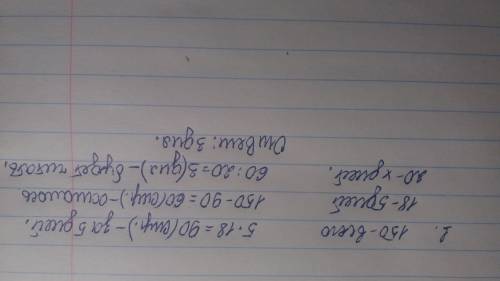 2. 150 - всего 5·18=90(стр.) - за 5 дней.
18 - 5 дней 150-90=60(стр.) - осталось
20 - x дней. 60:20=3(дня) - будет читать.
Ответ: 3 дня.